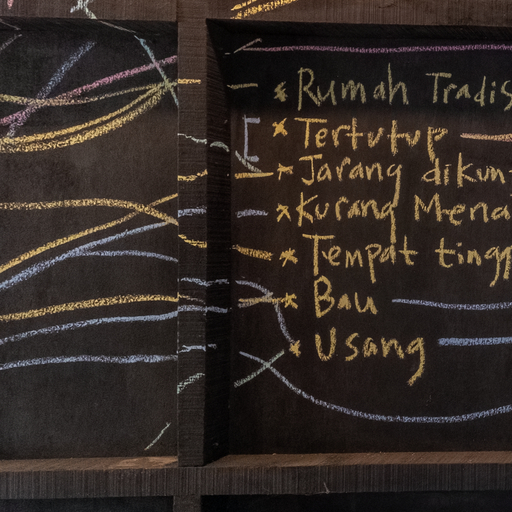 * Rumah Tradis
* Tertutup
* Jarang dikun
* Kurang Mena
* Tempat tingg
* Bau
* Usang